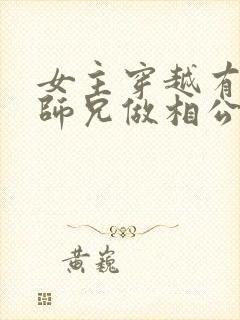 女主穿越有
師兄做相公
黃巍